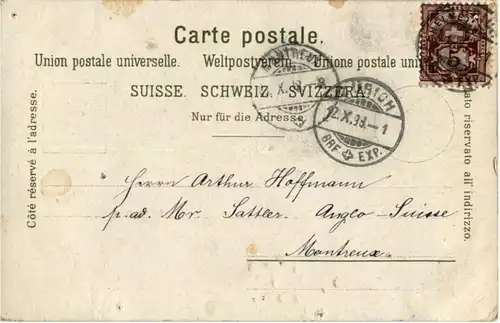 Carte postale.
Union postale universelle. Weltpostverein. Unione postale uni
SUISSE. SCHWEIZ. SVIZZERA.
Nur für die Adresse.
Côté réservé à l'adresse.
riservato all' indirizzo.
MONTREUX
X.98
ZÜRICH
12.X.98.–1
BRF. EXP.
Herrn Arthur Hoffmann
p. ad. Mr. Sattler. Anglo-Suisse
Montreux